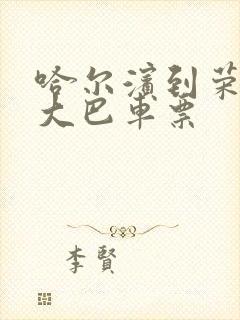 哈尔滨到荣
大巴车票
李贤